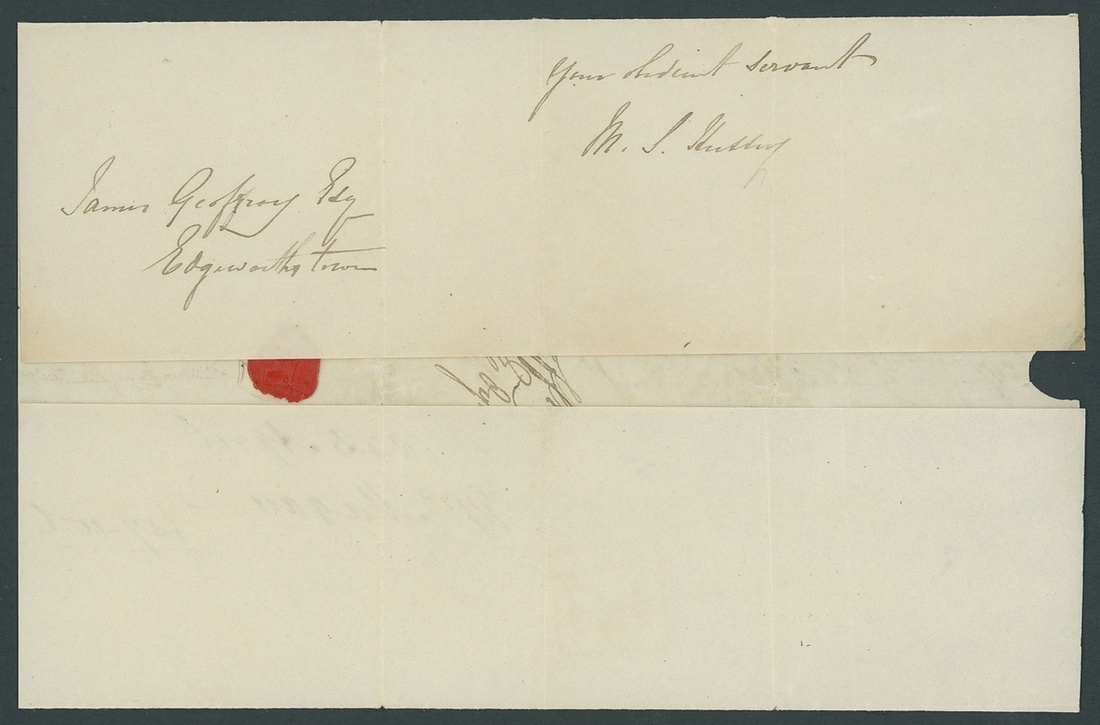 Your obedient servant
M. S. Hussey
James Geoffroy Esq
Edgeworthstown